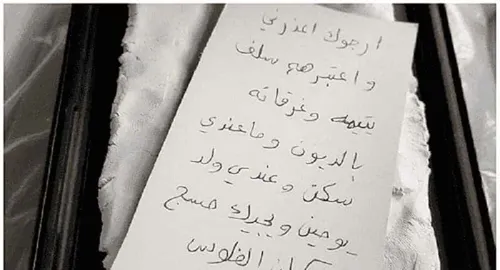 ارجوك اعذرني
واعتبرهم سلف
يتيمه وغرقانه
بالديون وماعندي
سكن وعندي ولد
يومين ويجيك مسج
مكان الفلوس